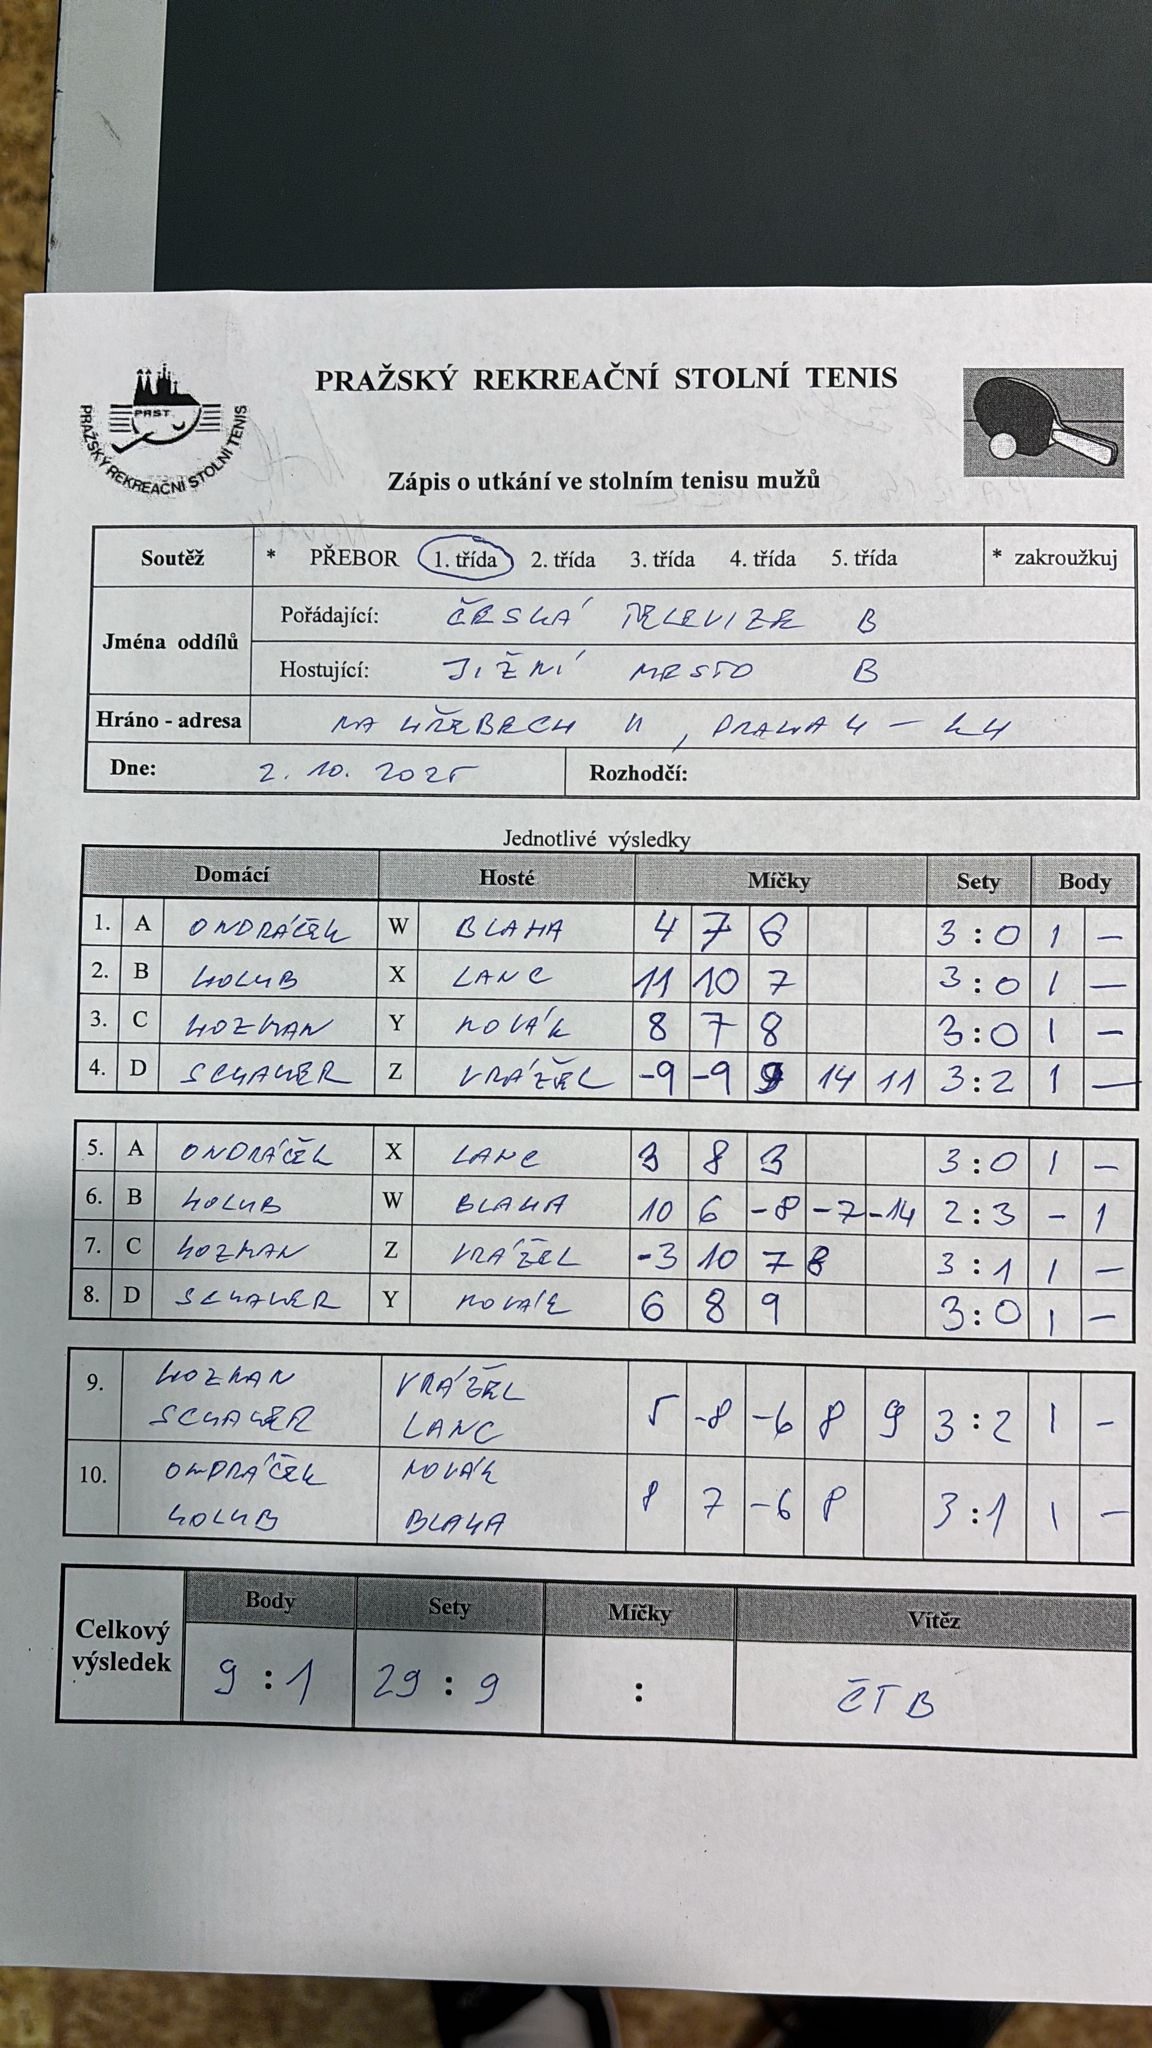 PRAŽSKÝ REKREAČNÍ STOLNÍ TENIS
PRST
PRAŽSKÝ REKREAČNÍ STOLNÍ TENIS
Zápis o utkání ve stolním tenisu mužů
Soutěž * PŘEBOR 1. třída 2. třída 3. třída 4. třída 5. třída * zakroužkuj
Jména oddílů
Pořádající: ČESKÁ TELEVIZE B
Hostující: JIŽNÍ MESTO B
Hráno - adresa NA HŘEBECH II, PRAHA 4 -
Dne: 2. 10. 2025 Rozhodčí:
Jednotlivé výsledky
Domácí Hosté Míčky Sety Body
1. A ONDRÁČEK W BLAHA 4 7 6 3 : 0 1 –
2. B HOLUB X LANC 11 10 7 3 : 0 1 –
3. C HOZMAN Y NOVÁK 8 7 8 3 : 0 1 –
4. D SCHAUER Z VRÁŽEL -9 -9 9 14 11 3 : 2 1 –
5. A ONDRÁČEK X LANC 3 8 3 3 : 0 1 –
6. B HOLUB W BLAHA 10 6 -8 -7 -14 2 : 3 – 1
7. C HOZMAN Z VRÁŽEL -3 10 7 8 3 : 1 1 –
8. D SCHAUER Y NOVÁK 6 8 9 3 : 0 1 –
9. HOZMAN VRÁŽEL
SCHAUER LANC 5 -8 -6 8 9 3 : 2 1 –
10. ONDRÁČEK NOVÁK
HOLUB BLAHA 8 7 -6 8 3 : 1 1 –
Celkový výsledek
Body Sety Míčky Vítěz
9 : 1 29 : 9 : ČT B